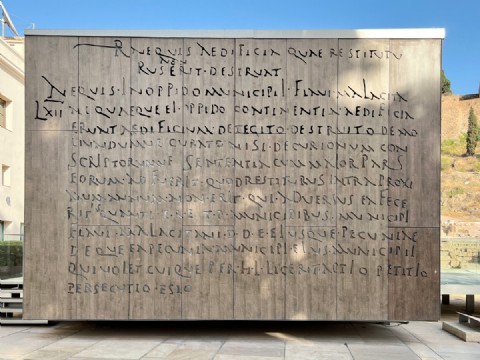 R NE QUIS AEDIFICIA QUAE RESTITUTU
NON
RUS ERIT DESTRUAT
NE QUIS IN OPPIDO MUNICIPII FLAVI MALACITA
LXII NI QUAEQUE EI OPPIDO CONTINENTIA AEDIFICIA
ERUNT AEDIFICIUM DETEGITO DESTRUITO DEMO
LIUNDUMVE CURATE NISI DECURIONUM CON
SCRIPTORUMVE SENTENTIA CUM MAIOR PARS
EORUM ADFUERIT QUOD RESTITURUS INTRA PROXI
MUM ANNUM NON ERIT QUI ADVERSUS EA FECE
RIT IS QUANTI E R E T P MUNICIPIBUS MUNICIPI
FLAVI MALACITANI D D E EIUSQUE PECUNIAE
DEQUE EA PECUNIA MUNICIPI EIUS MUNICIPII
QUI VOLET CUIQUE PER H L LICEBIT ACTIO PETITIO
PERSECUTIO ESTO